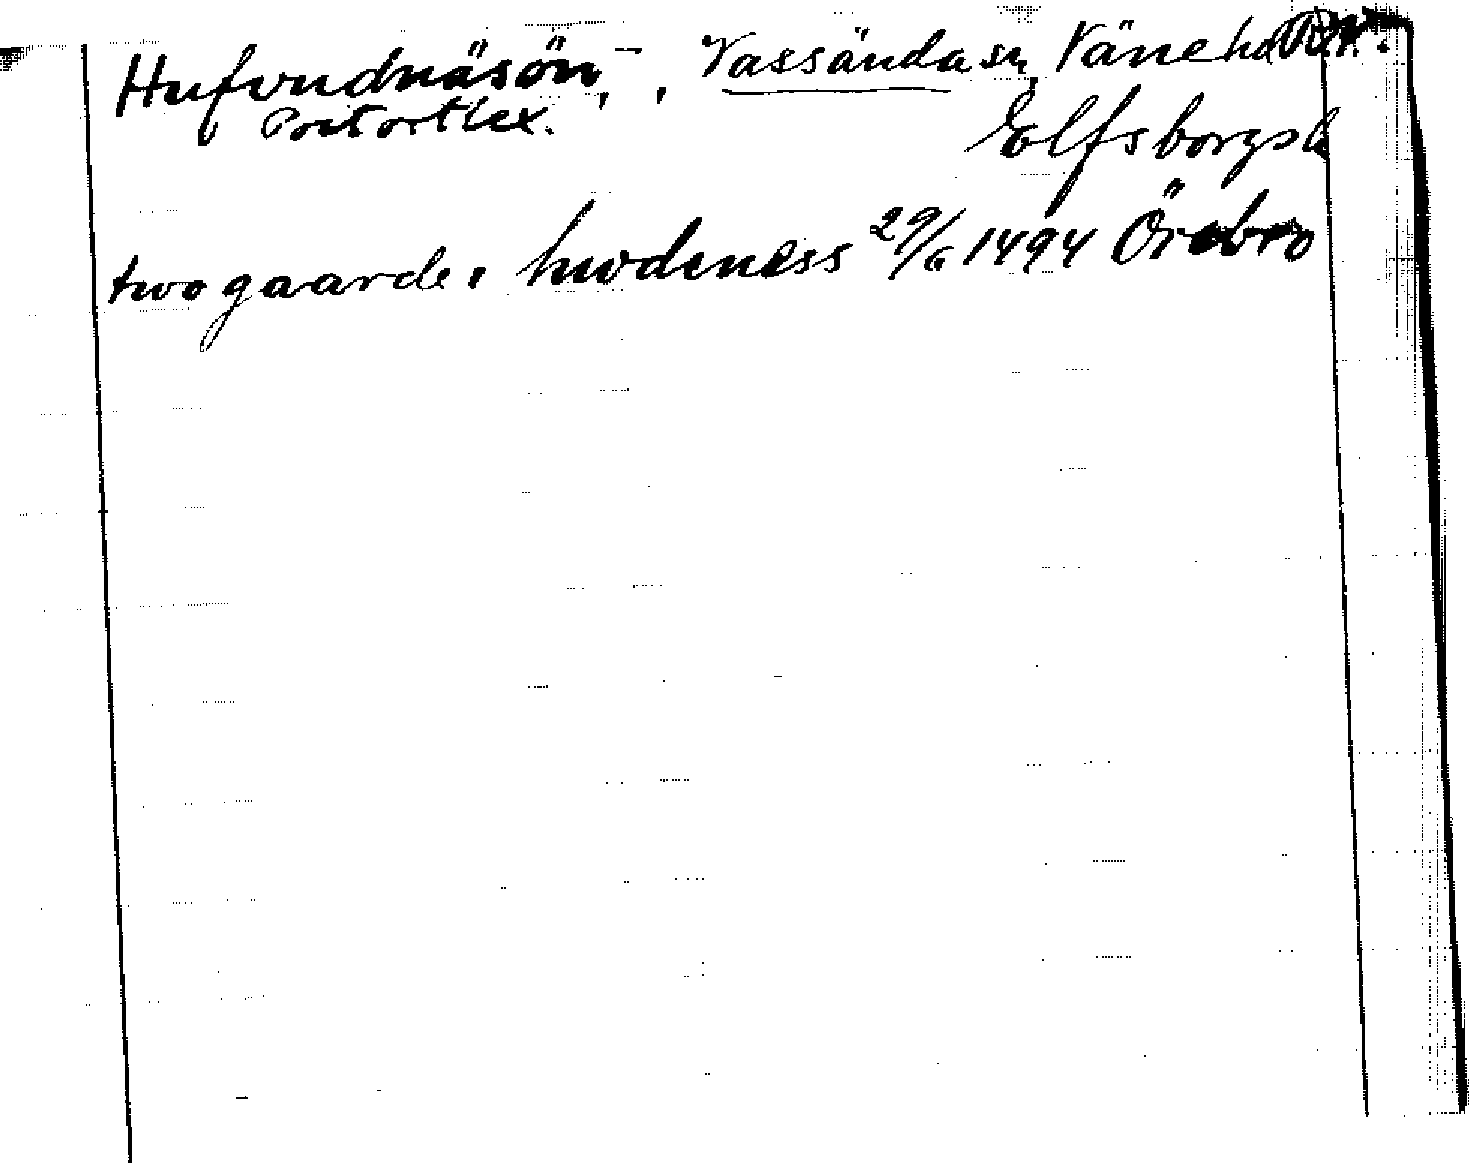 Hufvudnäsön, –, Vassända sn, Väne hd
Postortlex.
Elfsborgs l
two gaarde i hwdeness 29/6 1494 Örebro